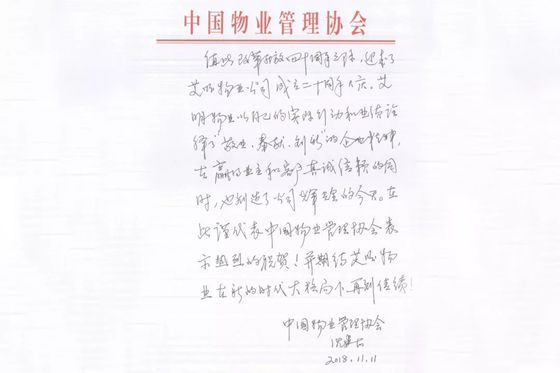 中国物业管理协会
值此改革开放四十周年之际，迎来了
艾明物业公司成立二十周年大庆。艾
明物业以自己的实际行动和业绩诠
释了"敬业、奉献、创新"的企业精神，
在赢得业主和客户真诚信赖的同
时，也创造了公司辉煌的今天。在
此谨代表中国物业管理协会表
示热烈的祝贺！并期待艾明物
业在新的时代大格局下，再创佳绩！
中国物业管理协会
沈建忠
2018.11.11